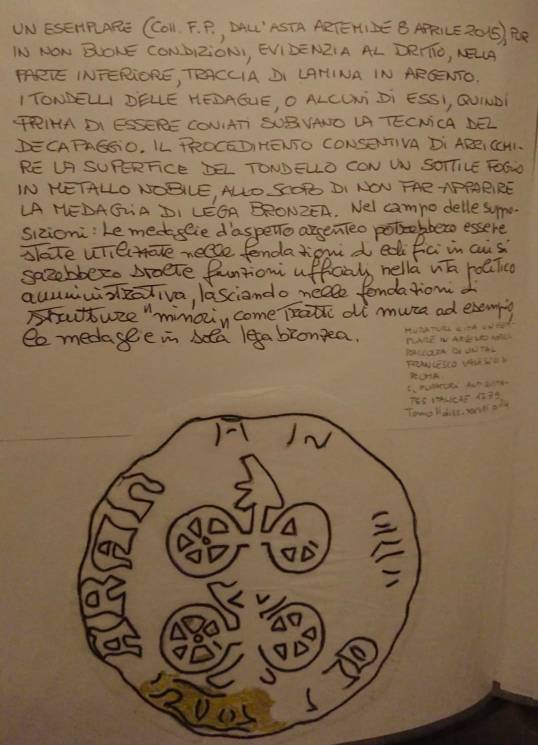 UN ESEMPLARE (COLL. F.P., DALL'ASTA ARTEMIDE 8 APRILE 2015), PUR
IN NON BUONE CONDIZIONI, EVIDENZIA AL DRITTO, NELLA
PARTE INFERIORE, TRACCIA DI LAMINA IN ARGENTO.
I TONDELLI DELLE MEDAGLIE, O ALCUNI DI ESSI, QUINDI
PRIMA DI ESSERE CONIATI SUBIVANO LA TECNICA DEL
DECAPAGGIO. IL PROCEDIMENTO CONSENTIVA DI ARRICCHI-
RE LA SUPERFICE DEL TONDELLO CON UN SOTTILE FOGLIO
IN METALLO NOBILE, ALLO SCOPO DI NON FAR APPARIRE
LA MEDAGLIA DI LEGA BRONZEA. Nel campo delle suppo-
sizioni: Le medaglie d'aspetto argenteo potrebbero essere
state utilizzate nelle fondazioni di edifici in cui si
sarebbero svolte funzioni ufficiali nella vita politico
amministrativa, lasciando nelle fondazioni di
strutture "minori" come tratti di mura ad esempio
le medaglie in sola lega bronzea.
MURATORI CITA UN ESEM-
PLARE IN ARGENTO NELLA
RACCOLTA DI UN TAL
FRANCESCO
ROMA.
L. MURATORI ANTIQUITA-
TES ITALICAE
Tomo